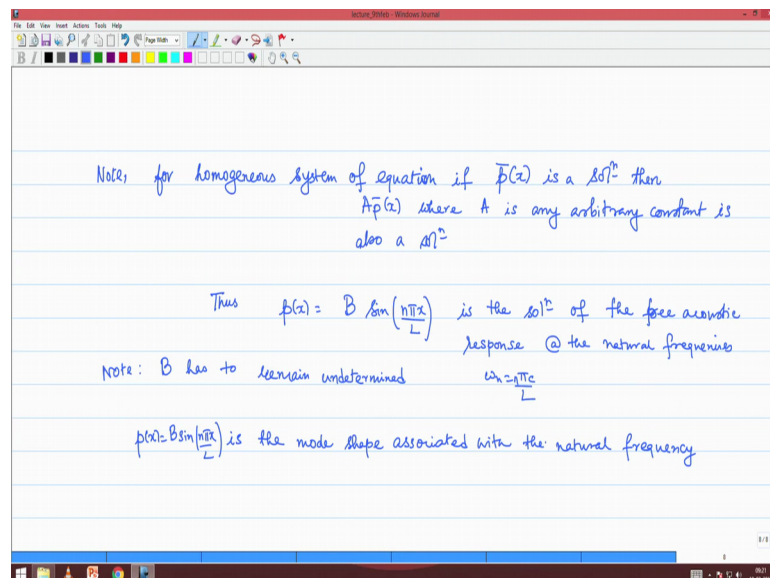 lecture_9thfeb - Windows Journal
File Edit View Insert Actions Tools Help
Page Width
B I
Note, for homogeneous system of equation if p̄(x) is a solⁿ then
Ap̄(x) where A is any arbitrary constant is
also a solⁿ
Thus p(x) = B sin(nπx/L) is the solⁿ of the free acoustic
response @ the natural frequencies
Note: B has to remain undetermined ωn = nπc/L
p(x) = B sin(nπx/L) is the mode shape associated with the natural frequency
8/8
8
09:21